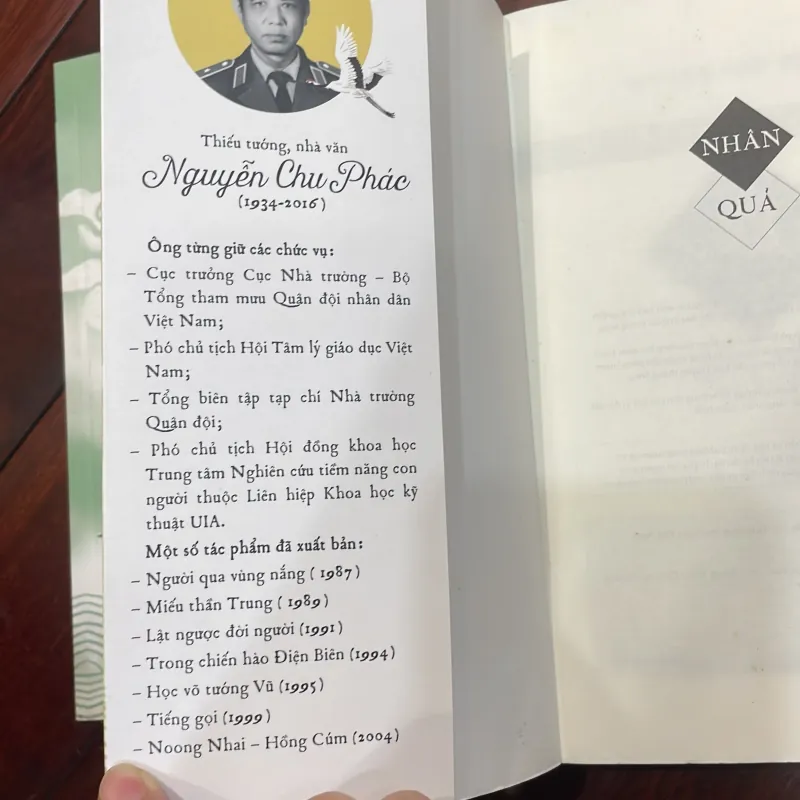 Thiếu tướng, nhà văn
Nguyễn Chu Phác
(1934-2016)
Ông từng giữ các chức vụ:
– Cục trưởng Cục Nhà trường – Bộ
Tổng tham mưu Quân đội nhân dân
Việt Nam;
– Phó chủ tịch Hội Tâm lý giáo dục Việt
Nam;
– Tổng biên tập tạp chí Nhà trường
Quân đội;
– Phó chủ tịch Hội đồng khoa học
Trung tâm Nghiên cứu tiềm năng con
người thuộc Liên hiệp Khoa học kỹ
thuật UIA.
Một số tác phẩm đã xuất bản:
– Người qua vùng nắng ( 1987)
– Miếu thần Trung ( 1989)
– Lật ngược đời người (1991)
– Trong chiến hào Điện Biên (1994)
– Học võ tướng Vũ (1995)
– Tiếng gọi (1999)
– Noong Nhai – Hồng Cúm (2004)
NHÂN
QUẢ